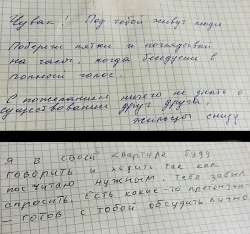 Чувак! Под тобой живут люди
Побереги пятки и поглядывай
на часы, когда беседуешь в
полный голос.
С пожеланием ничего не знать о
существовании друг друга,
жильцы снизу
Я в своей квартире буду
говорить и ходить так как
посчитаю нужным. Тебя забыл
спросить. Есть какие-то претензии
— готов с тобой обсудить лично